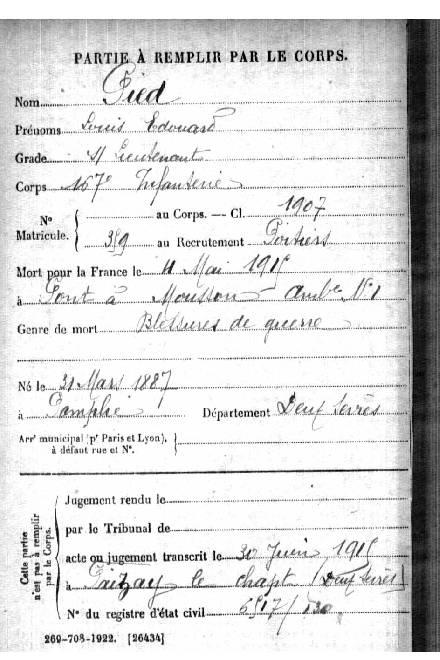 PARTIE À REMPLIR PAR LE CORPS.
Nom Pied
Prénoms Louis Edouard
Grade S/ Lieutenant
Corps 167e Infanterie
No Matricule. { au Corps. — Cl. 1907
359 au Recrutement Poitiers
Mort pour la France le 11 Mai 1915
à Pont à Mousson - Ambce No 1
Genre de mort Blessures de guerre
Né le 31 Mars 1887
à Département Deux Sèvres
Arrt municipal (pr Paris et Lyon), à défaut rue et No.
Cette partie n'est pas à remplir par le Corps.
Jugement rendu le
par le Tribunal de
acte ou jugement transcrit le 30 Juin 1915
à Paizay le chapt (Deux Sèvres)
No du registre d'état civil
269-708-1922. [26434]